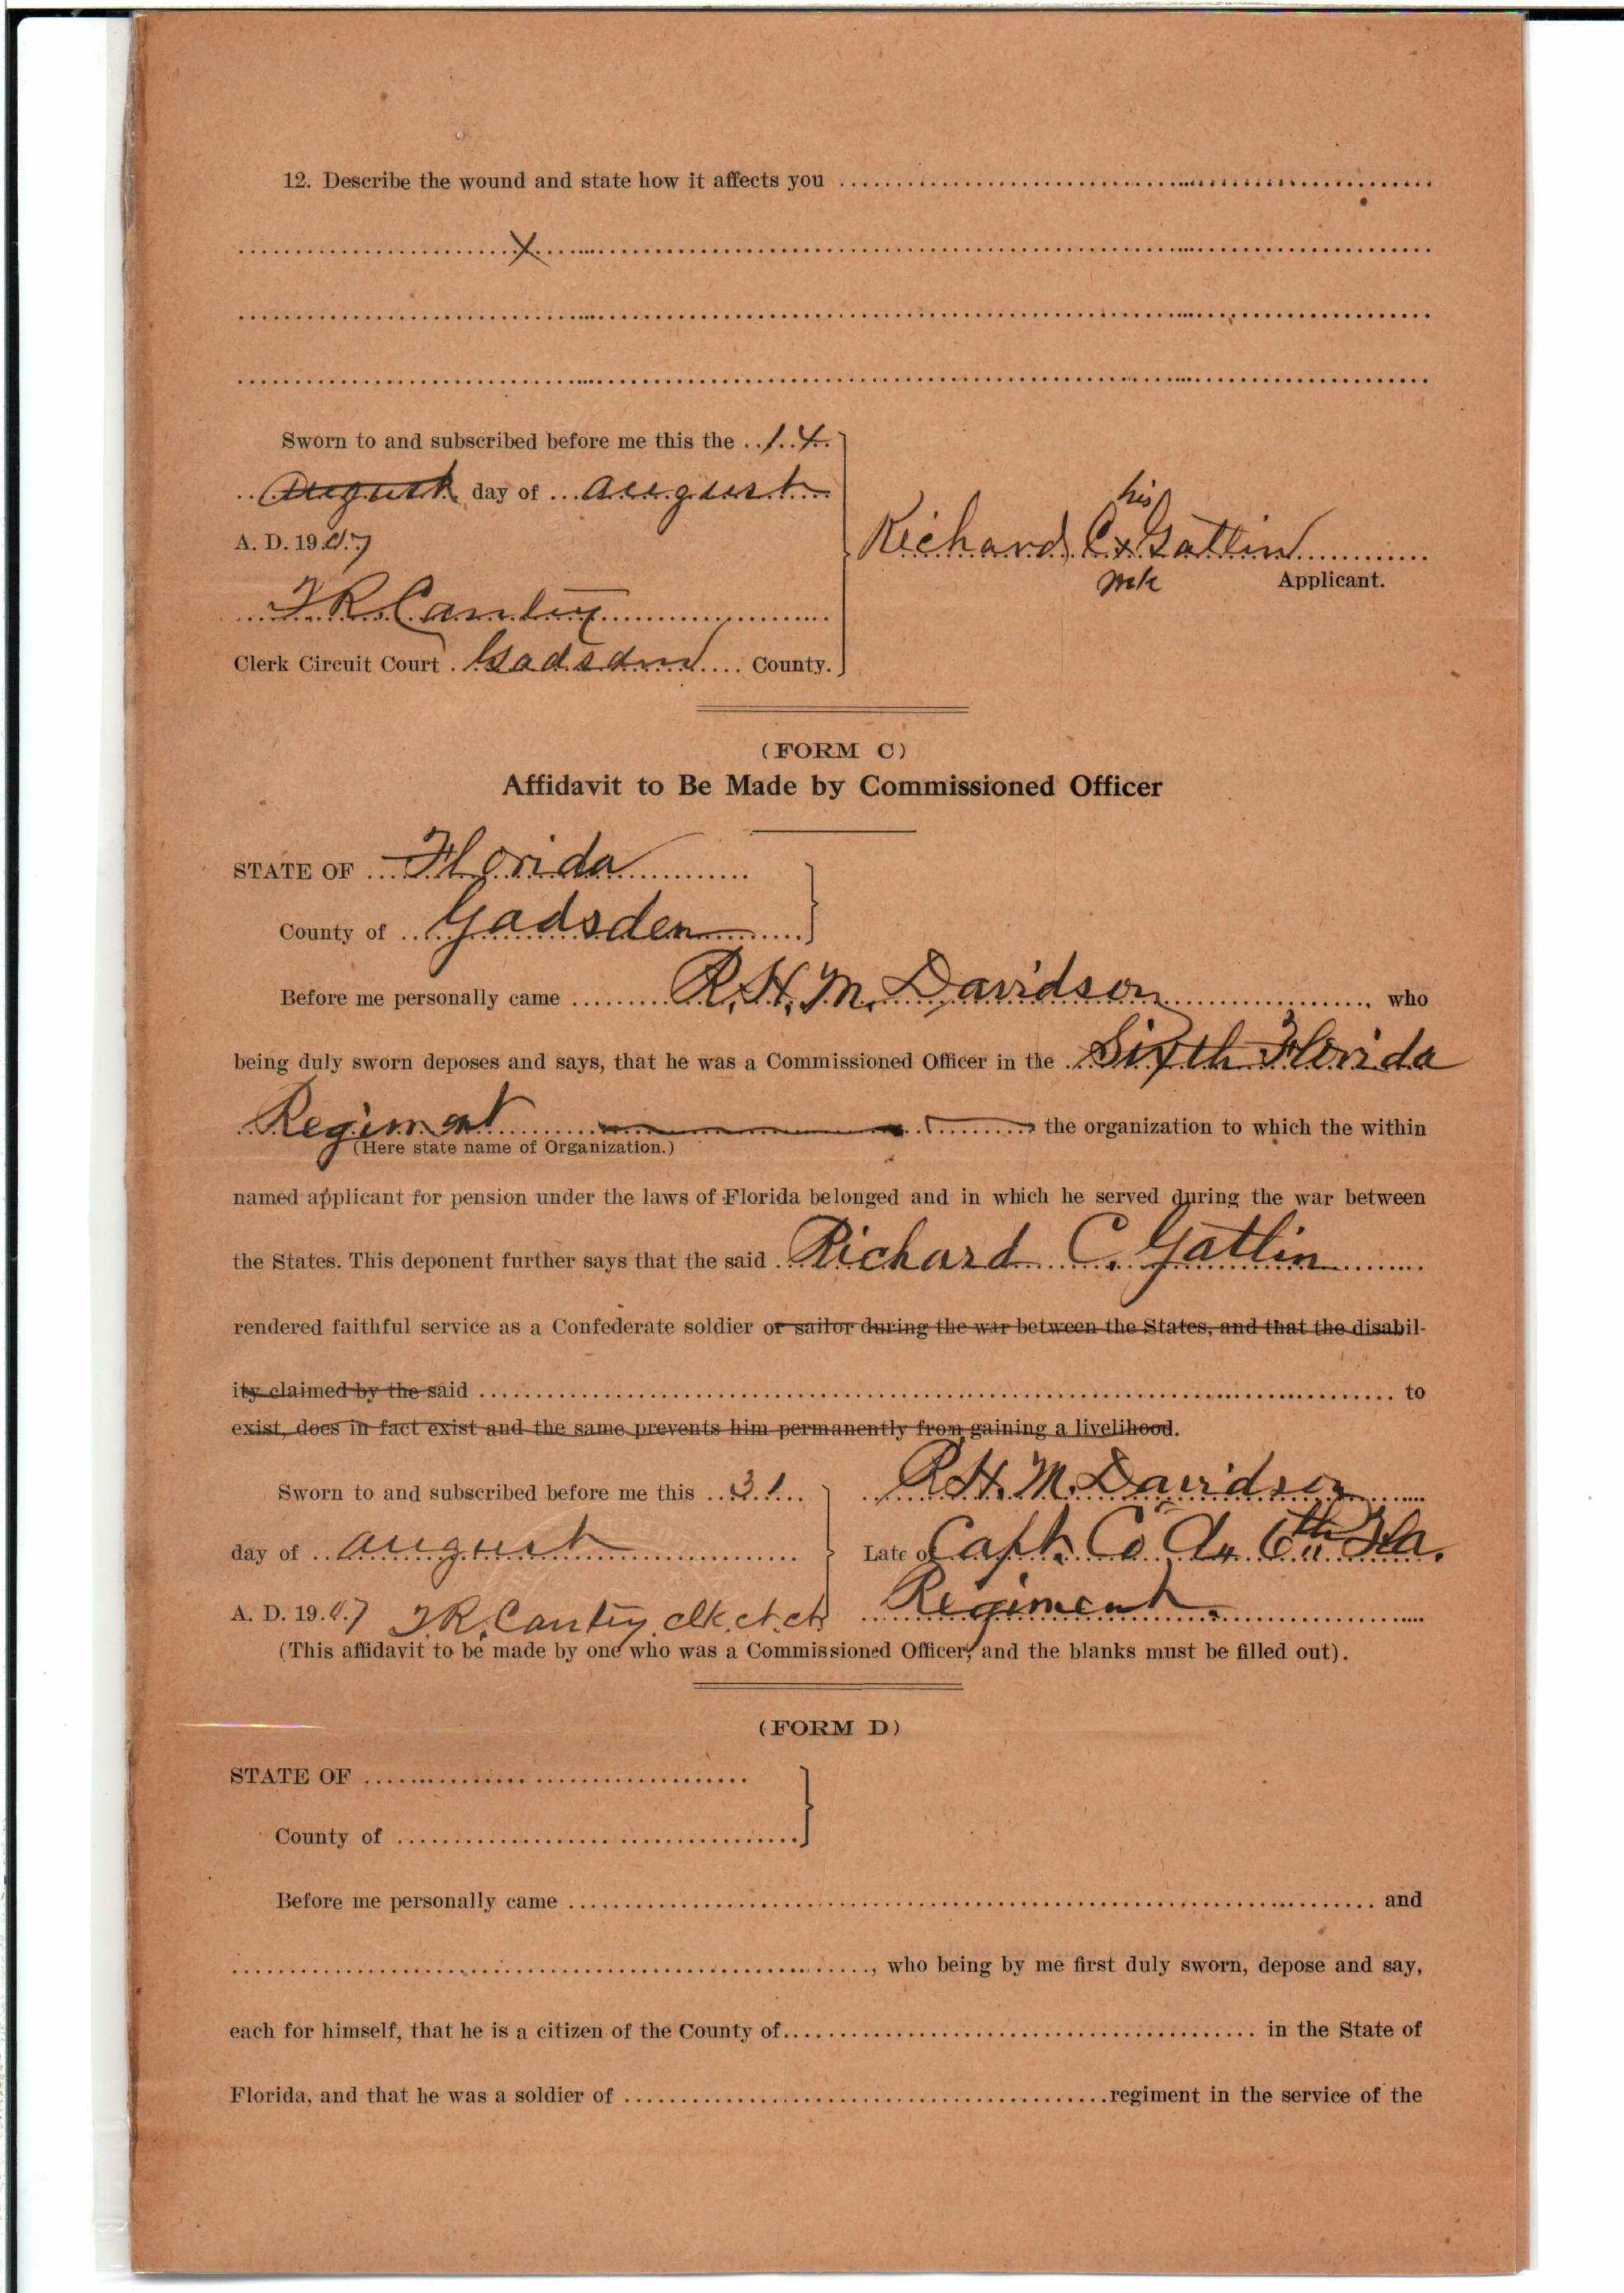 12. Describe the wound and state how it affects you
X
Sworn to and subscribed before me this the 14
August day of August
A. D. 1907
his
Richard C x Gatlin
mk Applicant.
J. R. Cantey
Clerk Circuit Court Gadsden County.
(FORM C)
Affidavit to Be Made by Commissioned Officer
STATE OF Florida
County of Gadsden
Before me personally came R. H. M. Davidson, who
being duly sworn deposes and says, that he was a Commissioned Officer in the Sixth Florida
Regiment the organization to which the within
(Here state name of Organization.)
named applicant for pension under the laws of Florida belonged and in which he served during the war between
the States. This deponent further says that the said Richard C. Gatlin
rendered faithful service as a Confederate soldier or sailor during the war between the States, and that the disabil-
ity claimed by the said to
exist, does in fact exist and the same prevents him permanently from gaining a livelihood.
Sworn to and subscribed before me this 31 R. H. M. Davidson
day of August Late of Capt. Co. A. 6th Fla.
A. D. 1907 J. R. Cantey clk. ct. ct. Regiment.
(This affidavit to be made by one who was a Commissioned Officer, and the blanks must be filled out).
(FORM D)
STATE OF
County of
Before me personally came and
, who being by me first duly sworn, depose and say,
each for himself, that he is a citizen of the County of in the State of
Florida, and that he was a soldier of regiment in the service of the